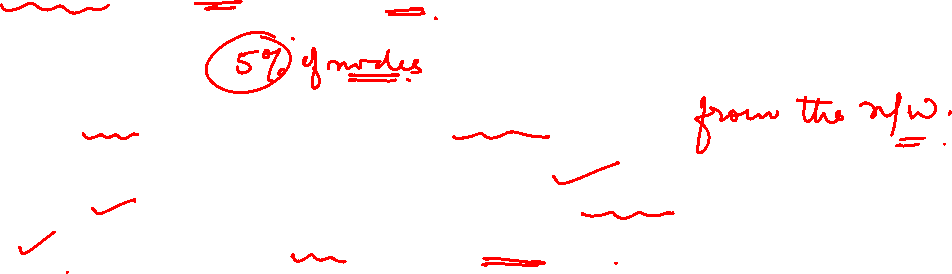 5% of nodes.
from the n/w.